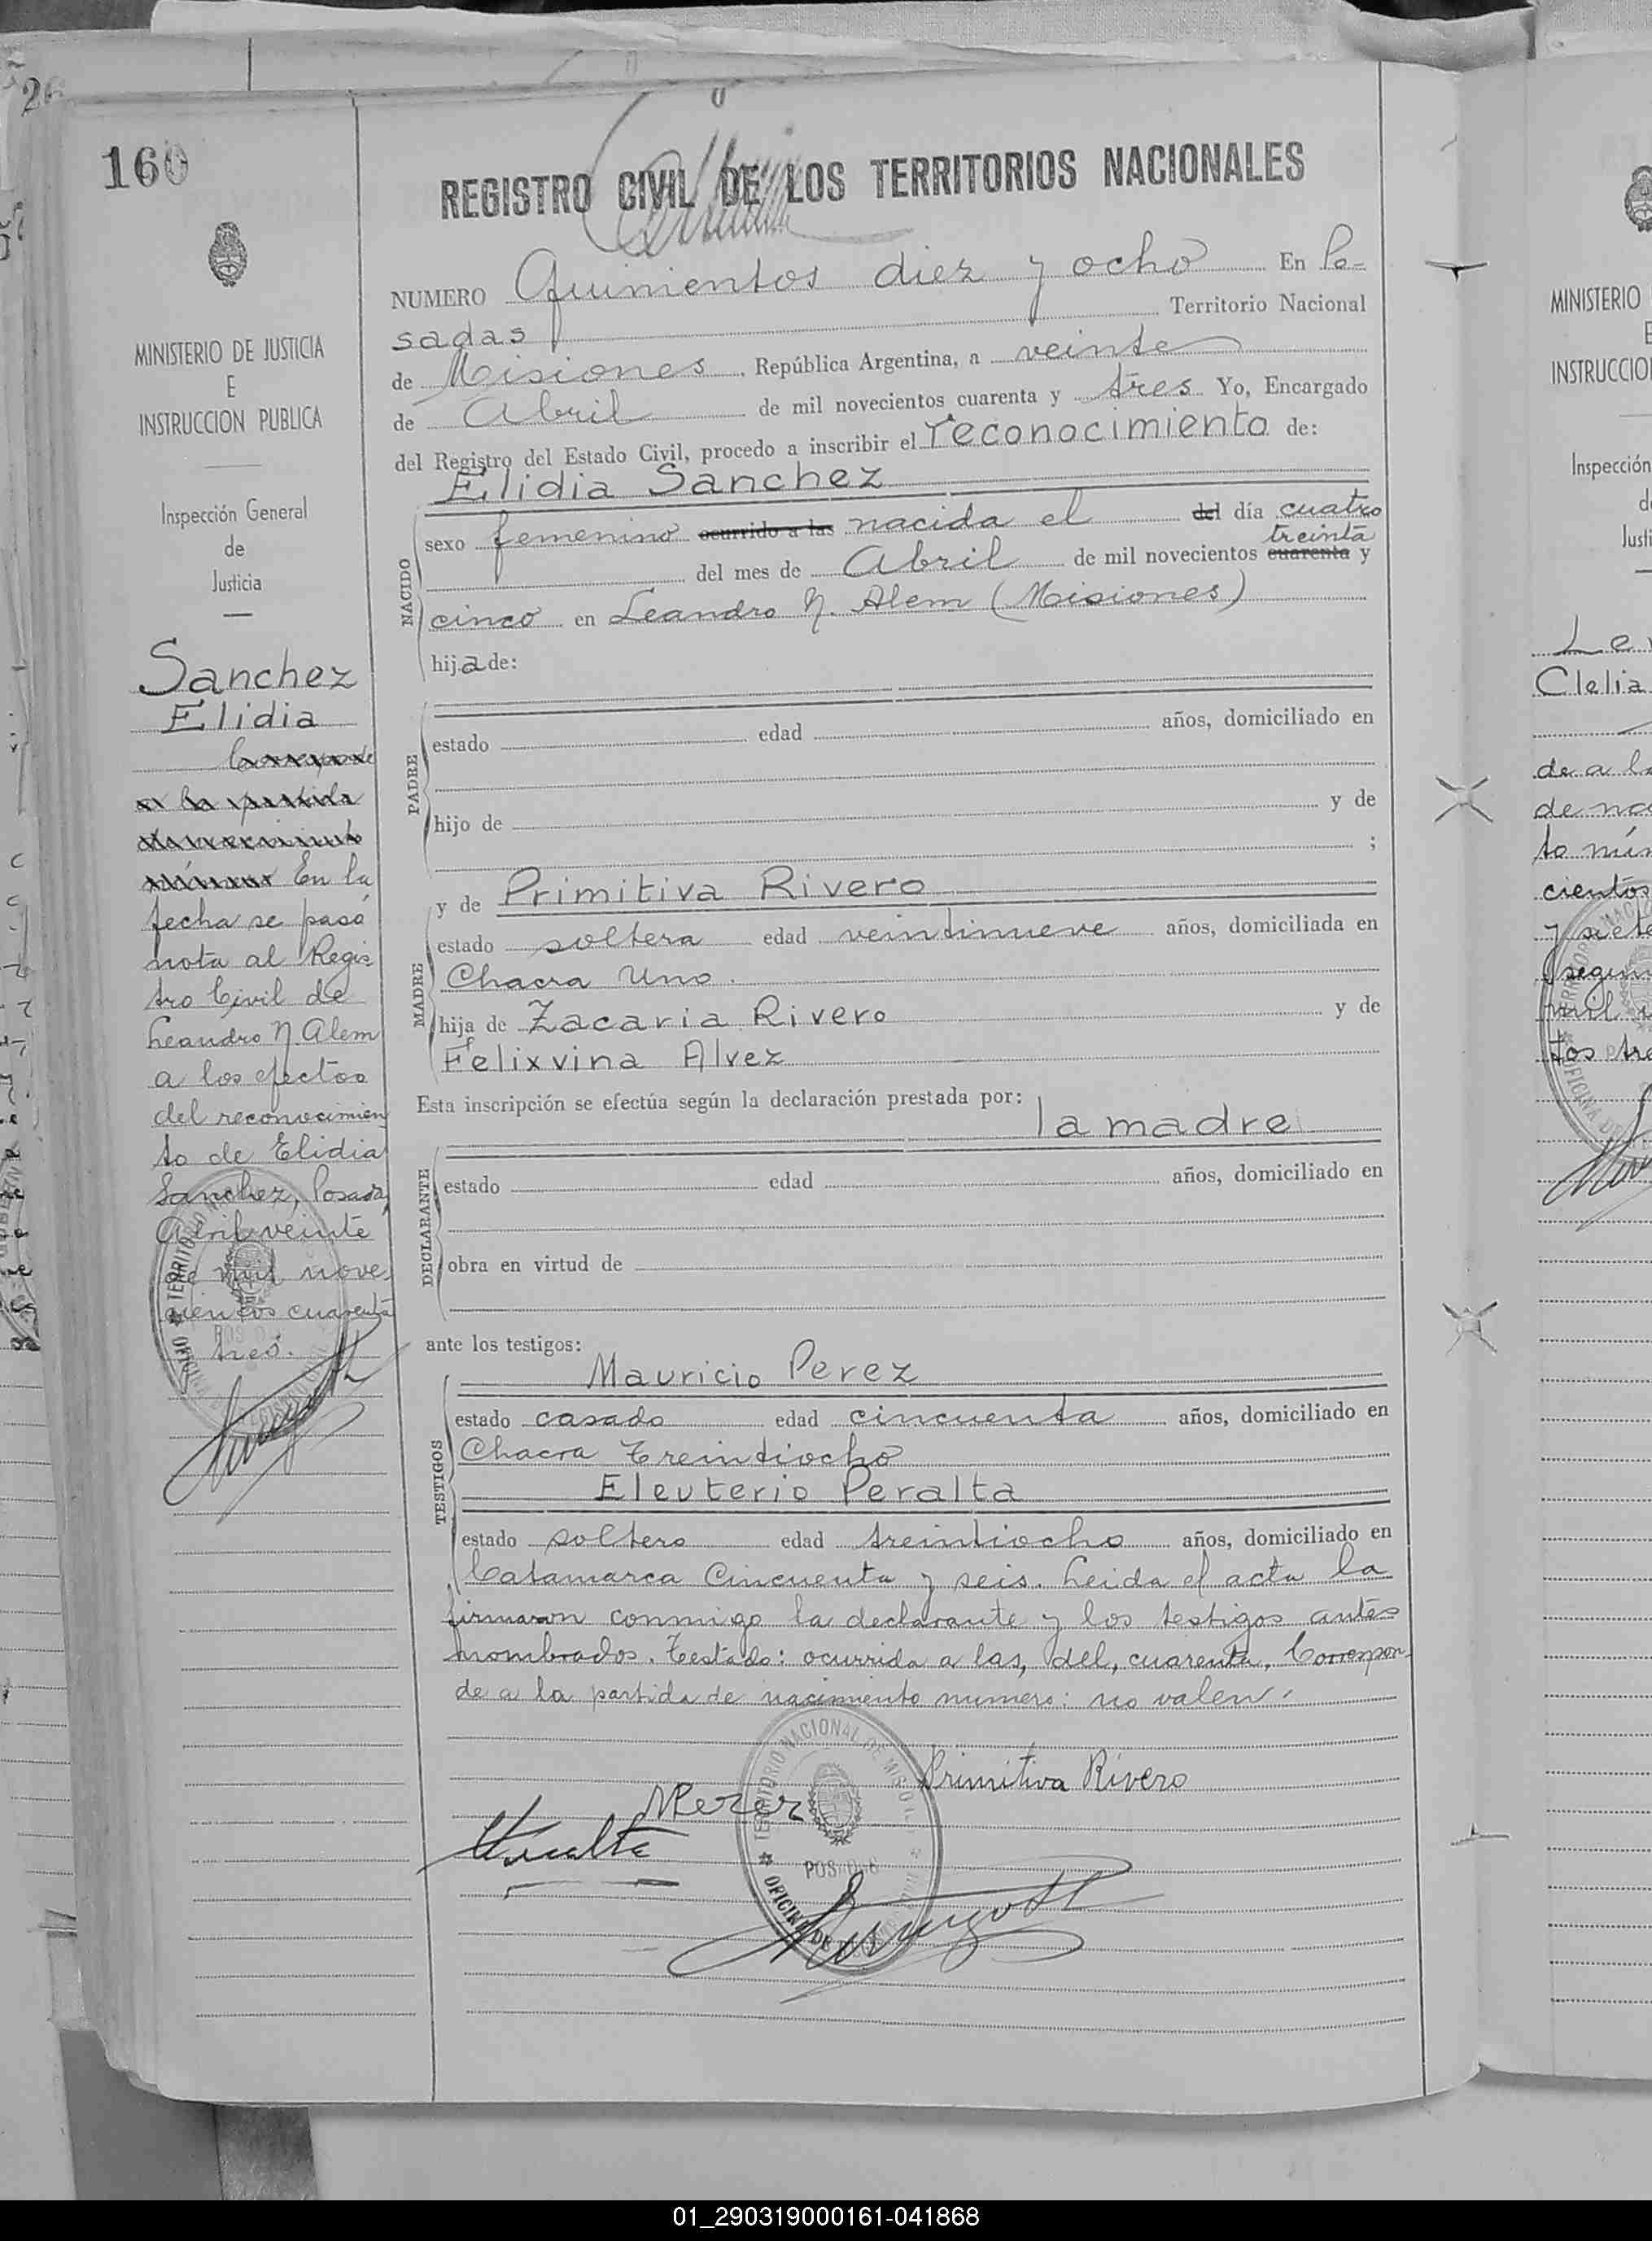 160
REGISTRO CIVIL DE LOS TERRITORIOS NACIONALES
MINISTERIO DE JUSTICIA
E
INSTRUCCION PUBLICA
Inspección General
de
Justicia
Sanchez
Elidia
Corresponde
a la partida
de nacimiento
número En la
fecha se pasó
nota al Regis-
tro Civil de
Leandro N. Alem
a los efectos
del reconocimien
to de Elidia
Sanchez, Posadas,
Abril veinte
de mil nove
cientos cuarenta
tres.
NUMERO Quinientos diez y ocho En Po-
sadas Territorio Nacional
de Misiones, República Argentina, a veinte
de Abril de mil novecientos cuarenta y tres Yo, Encargado
del Registro del Estado Civil, procedo a inscribir el reconocimiento de:
Elidia Sanchez
NACIDO
sexo femenino ocurrido a las nacida el del día cuatro
treinta
del mes de Abril de mil novecientos cuarenta y
cinco en Leandro N. Alem (Misiones)
hija de:
PADRE
estado edad años, domiciliado en
hijo de y de
;
MADRE
y de Primitiva Rivero
estado soltera edad veintinueve años, domiciliada en
Chacra Uno.
hija de Zacaria Rivero y de
Felixvina Alvez
Esta inscripción se efectúa según la declaración prestada por:
la madre
DECLARANTE
estado edad años, domiciliado en
obra en virtud de
ante los testigos:
Mauricio Perez
TESTIGOS
estado casado edad cincuenta años, domiciliado en
Chacra Treintiocho
Eleuterio Peralta
estado soltero edad treintiocho años, domiciliado en
Catamarca Cincuenta y seis. Leida el acta la
firmaron conmigo la declarante y los testigos antes
nombrados. Testado: ocurrida a las, del, cuarenta, Correspon-
de a la partida de nacimiento numero: no valen.
Primitiva Rivero
MPerez
TERRITORIO NACIONAL DE MISIONES
OFICINA DE
MINISTERIO
INSTRUCCIO
Inspección
Clelia
de a la
cientos
y siete
01_290319000161-041868